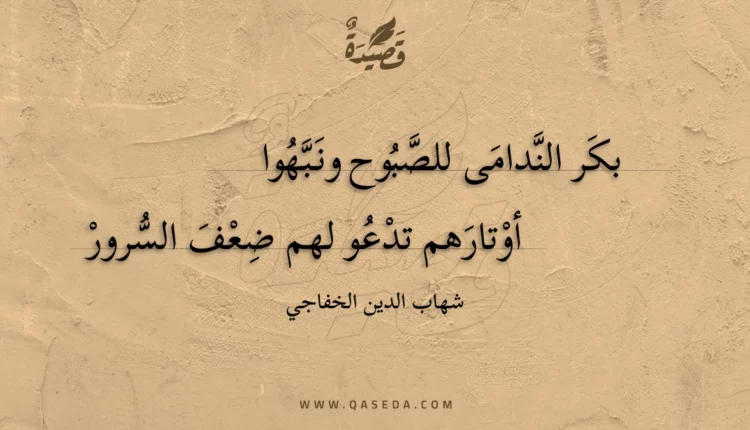 قَصِيْدَةٌ
بكَر النَّدامَى للصَّبُوح ونَبَّهُوا
أوْتارَهم تدْعُو لهم ضِعْفَ السُّرورْ
شهاب الدين الخفاجي
WWW.QASEDA.COM